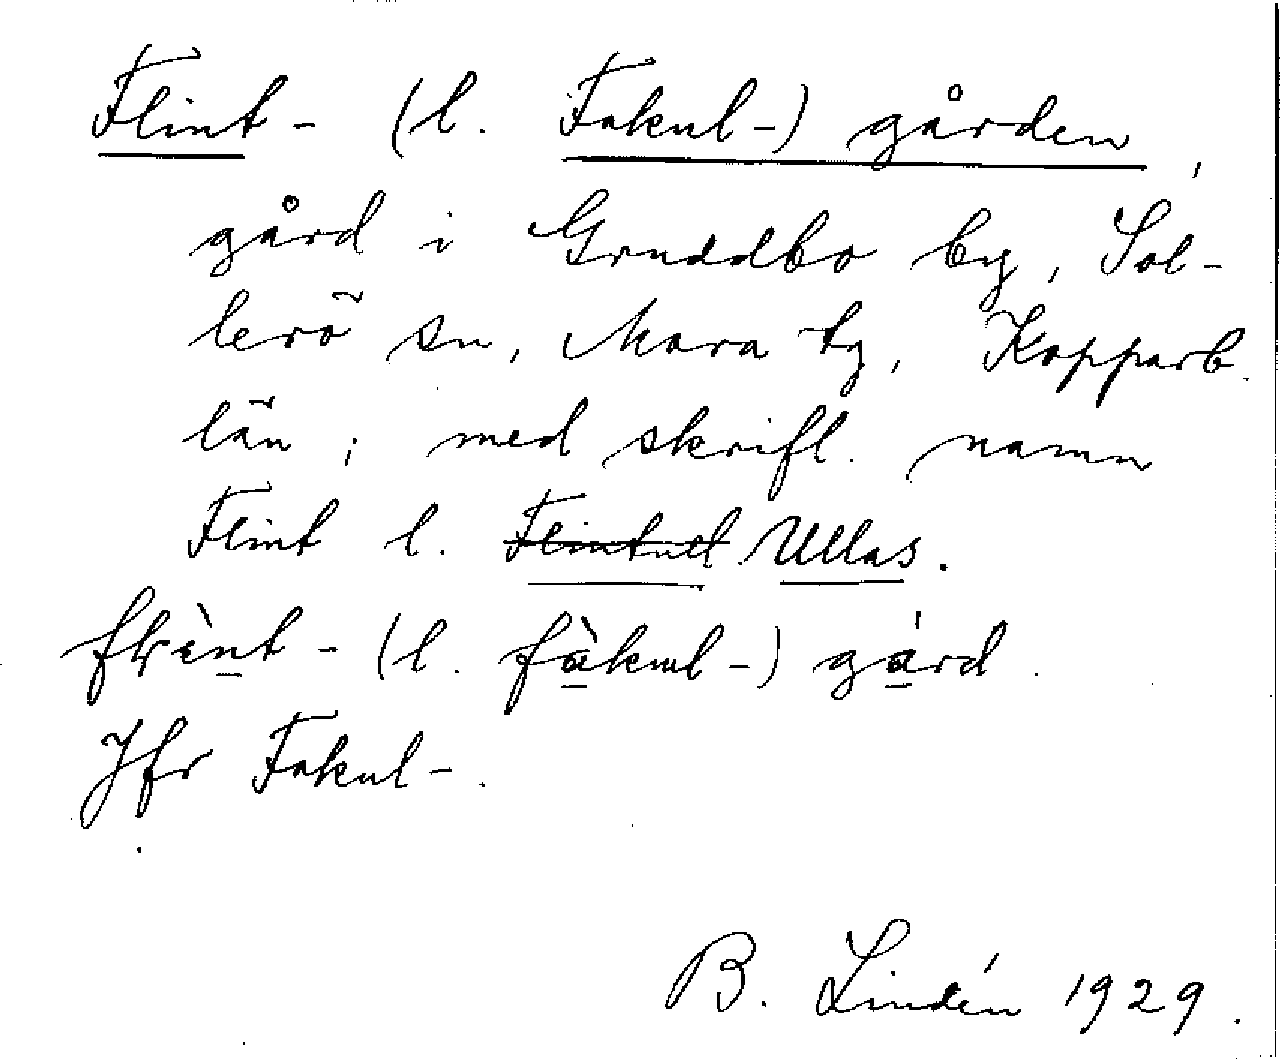 Flint- (l. Fakul-) gården,
gård i Gruddbo by, Sol-
lerö sn, Mora tg, Kopparb.
län; med skriftl. namn
Flint l. Flintull Ullas.
flint- (l. fàkul-) gård.
Jfr Fakul-.
B. Lindén 1929.